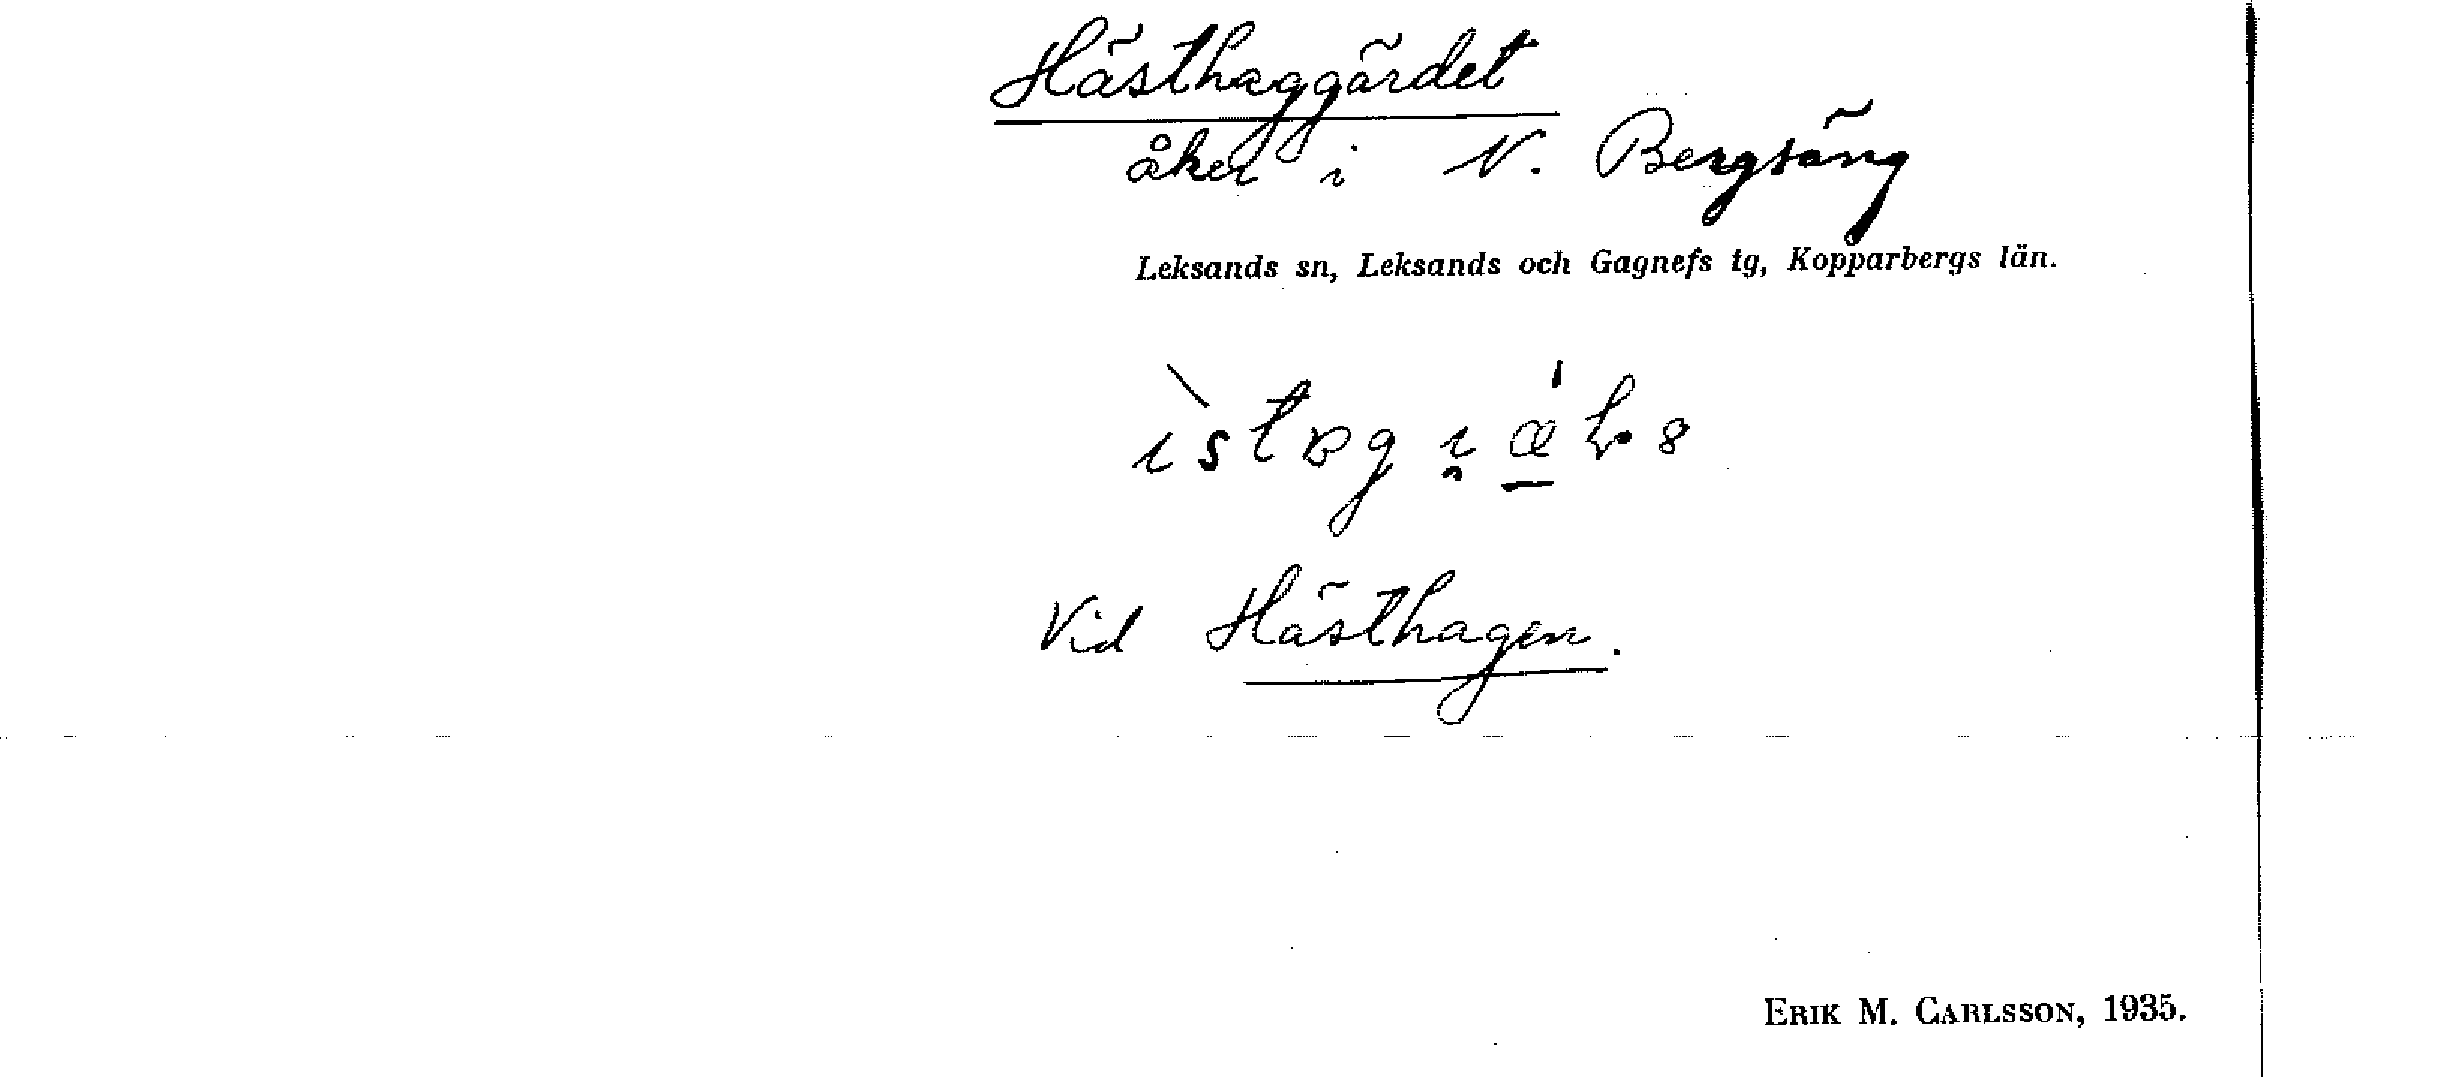 Hästhaggärdet
åker i N. Bergsäng
Leksands sn, Leksands och Gagnefs tg, Kopparbergs län.
Vid Hästhagen.
ERIK M. CARLSSON, 1935.